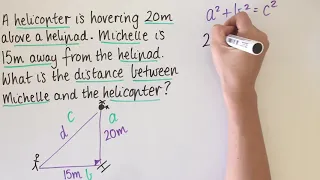 A helicopter is hovering 20m
above a helipad. Michelle is
15m away from the helipad.
What is the distance between
Michelle and the helicopter?
a² + b² = c²
2
c
a
d
20m
H
15m b